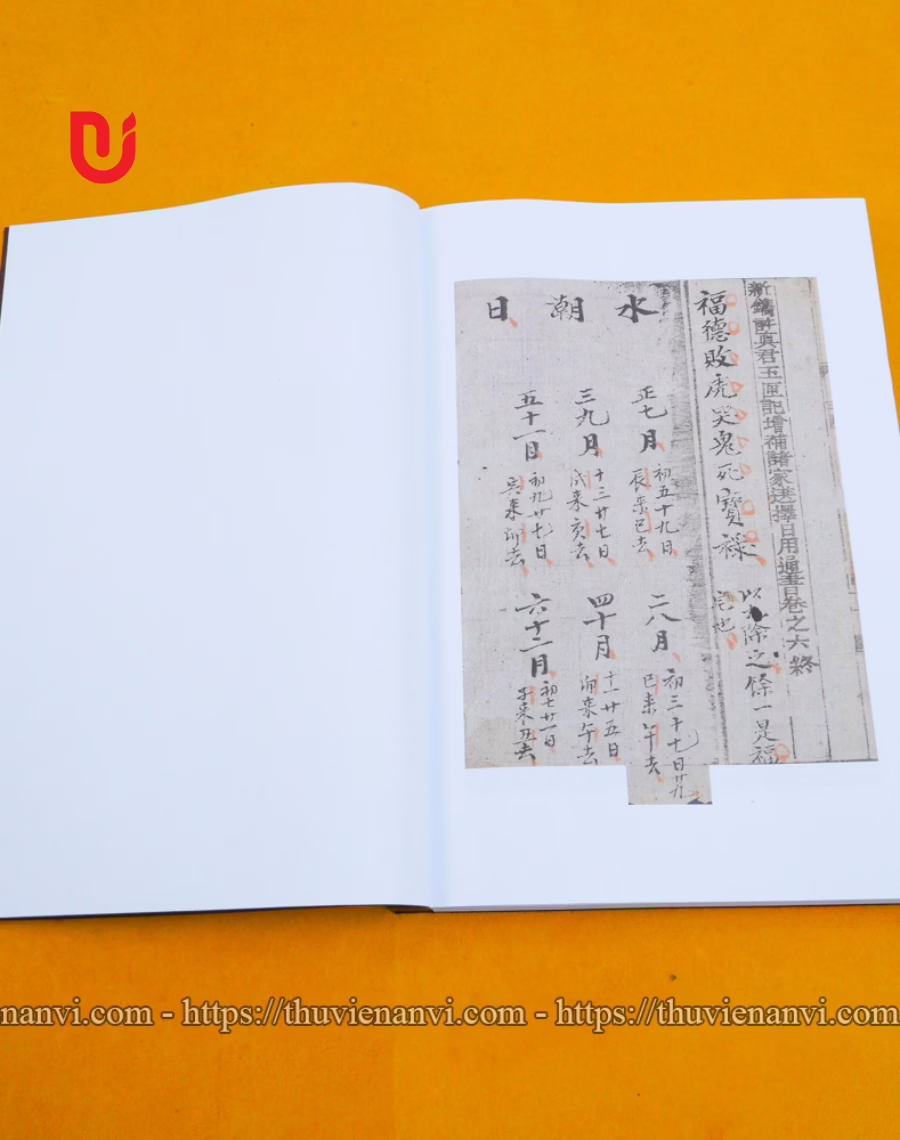 新鐫許真君玉匣記增補諸家选擇日用通書卷之六終
福德敗虎哭鬼死寶祿
以九除之餘一是福
完也
水朝日
正七月
初五十九日
辰來巳去
二八月
初三十七日廿九
巳來午去
三九月
十三廿七日
戌來亥去
四十月
十一廿五日
卯來午去
五十一月
初九廿七日
寅來卯去
六十二月
初七廿一日
子來丑去
nanvi.com - https://thuvienanvi.com - https://thuvienanvi.com